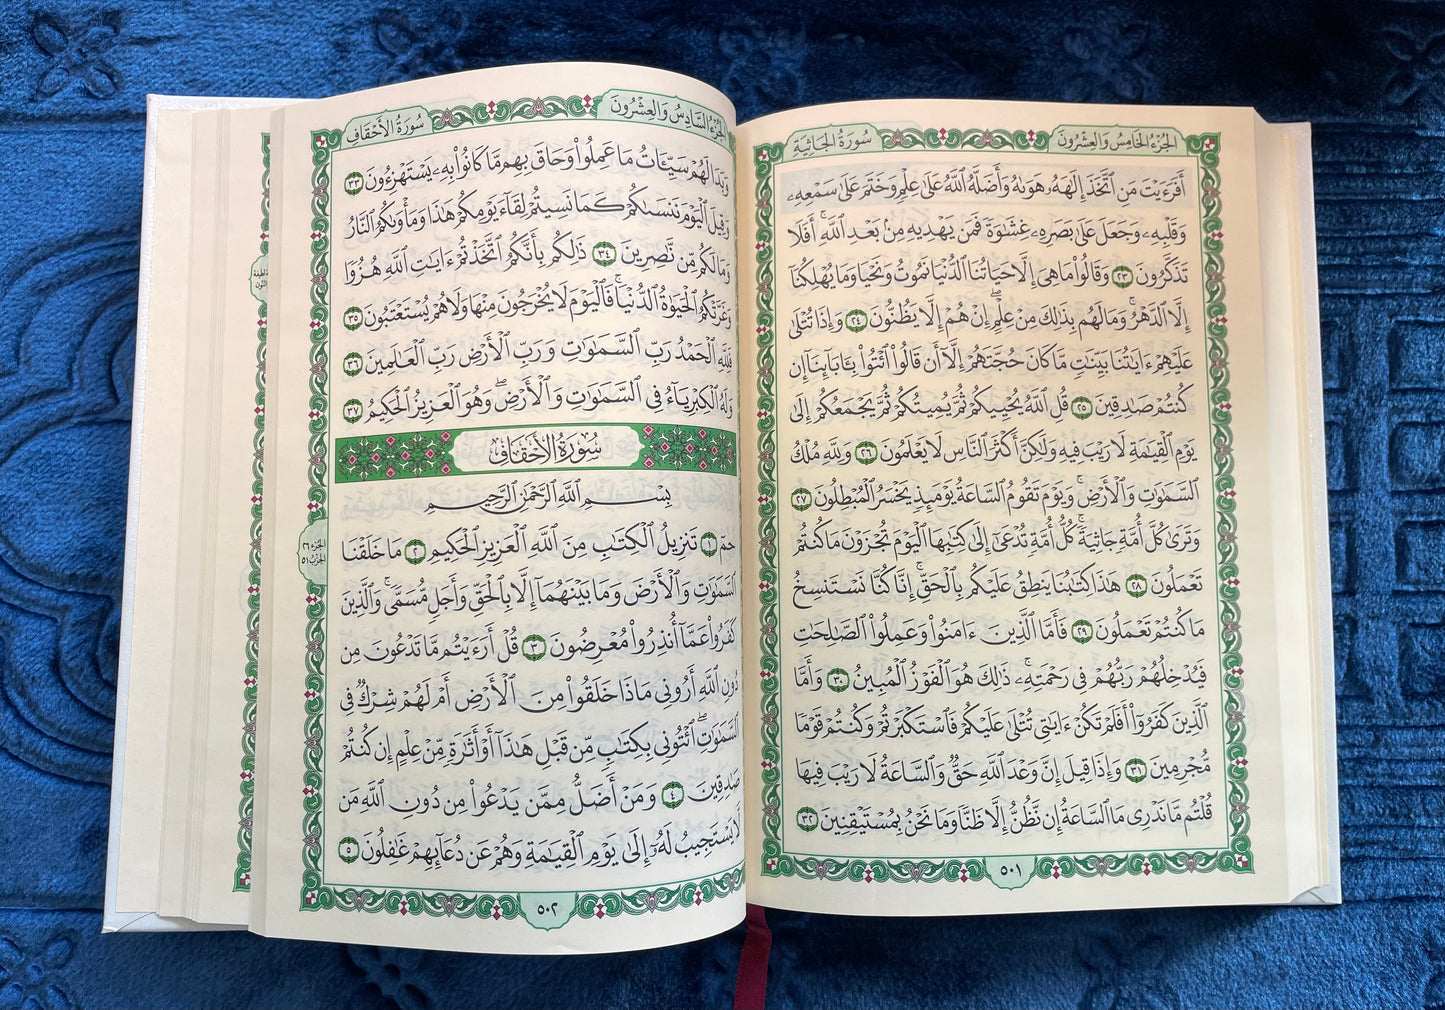 الجُزْءُ الخَامِسُ وَالعِشْرُونَ
سُورَةُ الجَاثِيَةِ
أَفَرَءَيْتَ مَنِ ٱتَّخَذَ إِلَٰهَهُۥ هَوَىٰهُ وَأَضَلَّهُ ٱللَّهُ عَلَىٰ عِلْمٍ وَخَتَمَ عَلَىٰ سَمْعِهِۦ
وَقَلْبِهِۦ وَجَعَلَ عَلَىٰ بَصَرِهِۦ غِشَٰوَةً فَمَن يَهْدِيهِ مِنۢ بَعْدِ ٱللَّهِۚ أَفَلَا
تَذَكَّرُونَ ٢٣ وَقَالُوا۟ مَا هِىَ إِلَّا حَيَاتُنَا ٱلدُّنْيَا نَمُوتُ وَنَحْيَا وَمَا يُهْلِكُنَآ
إِلَّا ٱلدَّهْرُۚ وَمَا لَهُم بِذَٰلِكَ مِنْ عِلْمٍۖ إِنْ هُمْ إِلَّا يَظُنُّونَ ٢٤ وَإِذَا تُتْلَىٰ
عَلَيْهِمْ ءَايَٰتُنَا بَيِّنَٰتٍ مَّا كَانَ حُجَّتَهُمْ إِلَّآ أَن قَالُوا۟ ٱئْتُوا۟ بِـَٔابَآئِنَآ إِن
كُنتُمْ صَٰدِقِينَ ٢٥ قُلِ ٱللَّهُ يُحْيِيكُمْ ثُمَّ يُمِيتُكُمْ ثُمَّ يَجْمَعُكُمْ إِلَىٰ
يَوْمِ ٱلْقِيَٰمَةِ لَا رَيْبَ فِيهِ وَلَٰكِنَّ أَكْثَرَ ٱلنَّاسِ لَا يَعْلَمُونَ ٢٦ وَلِلَّهِ مُلْكُ
ٱلسَّمَٰوَٰتِ وَٱلْأَرْضِۚ وَيَوْمَ تَقُومُ ٱلسَّاعَةُ يَوْمَئِذٍ يَخْسَرُ ٱلْمُبْطِلُونَ ٢٧
وَتَرَىٰ كُلَّ أُمَّةٍ جَاثِيَةًۚ كُلُّ أُمَّةٍ تُدْعَىٰٓ إِلَىٰ كِتَٰبِهَا ٱلْيَوْمَ تُجْزَوْنَ مَا كُنتُمْ
تَعْمَلُونَ ٢٨ هَٰذَا كِتَٰبُنَا يَنطِقُ عَلَيْكُم بِٱلْحَقِّۚ إِنَّا كُنَّا نَسْتَنسِخُ
مَا كُنتُمْ تَعْمَلُونَ ٢٩ فَأَمَّا ٱلَّذِينَ ءَامَنُوا۟ وَعَمِلُوا۟ ٱلصَّٰلِحَٰتِ
فَيُدْخِلُهُمْ رَبُّهُمْ فِى رَحْمَتِهِۦۚ ذَٰلِكَ هُوَ ٱلْفَوْزُ ٱلْمُبِينُ ٣٠ وَأَمَّا
ٱلَّذِينَ كَفَرُوٓا۟ أَفَلَمْ تَكُنْ ءَايَٰتِى تُتْلَىٰ عَلَيْكُمْ فَٱسْتَكْبَرْتُمْ وَكُنتُمْ قَوْمًا
مُّجْرِمِينَ ٣١ وَإِذَا قِيلَ إِنَّ وَعْدَ ٱللَّهِ حَقٌّ وَٱلسَّاعَةُ لَا رَيْبَ فِيهَا
قُلْتُم مَّا نَدْرِى مَا ٱلسَّاعَةُ إِن نَّظُنُّ إِلَّا ظَنًّا وَمَا نَحْنُ بِمُسْتَيْقِنِينَ ٣٢
٥٠١
الجُزْءُ السَّادِسُ وَالعِشْرُونَ
سُورَةُ الأَحْقَافِ
وَبَدَا لَهُمْ سَيِّـَٔاتُ مَا عَمِلُوا۟ وَحَاقَ بِهِم مَّا كَانُوا۟ بِهِۦ يَسْتَهْزِءُونَ ٣٣
وَقِيلَ ٱلْيَوْمَ نَنسَىٰكُمْ كَمَا نَسِيتُمْ لِقَآءَ يَوْمِكُمْ هَٰذَا وَمَأْوَىٰكُمُ ٱلنَّارُ
وَمَا لَكُم مِّن نَّٰصِرِينَ ٣٤ ذَٰلِكُم بِأَنَّكُمُ ٱتَّخَذْتُمْ ءَايَٰتِ ٱللَّهِ هُزُوًا
وَغَرَّتْكُمُ ٱلْحَيَوٰةُ ٱلدُّنْيَاۚ فَٱلْيَوْمَ لَا يُخْرَجُونَ مِنْهَا وَلَا هُمْ يُسْتَعْتَبُونَ ٣٥
فَلِلَّهِ ٱلْحَمْدُ رَبِّ ٱلسَّمَٰوَٰتِ وَرَبِّ ٱلْأَرْضِ رَبِّ ٱلْعَٰلَمِينَ ٣٦
وَلَهُ ٱلْكِبْرِيَآءُ فِى ٱلسَّمَٰوَٰتِ وَٱلْأَرْضِۖ وَهُوَ ٱلْعَزِيزُ ٱلْحَكِيمُ ٣٧
سُورَةُ الأَحْقَافِ
بِسْمِ ٱللَّهِ ٱلرَّحْمَٰنِ ٱلرَّحِيمِ
حمٓ ١ تَنزِيلُ ٱلْكِتَٰبِ مِنَ ٱللَّهِ ٱلْعَزِيزِ ٱلْحَكِيمِ ٢ مَا خَلَقْنَا
ٱلسَّمَٰوَٰتِ وَٱلْأَرْضَ وَمَا بَيْنَهُمَآ إِلَّا بِٱلْحَقِّ وَأَجَلٍ مُّسَمًّىۚ وَٱلَّذِينَ
كَفَرُوا۟ عَمَّآ أُنذِرُوا۟ مُعْرِضُونَ ٣ قُلْ أَرَءَيْتُم مَّا تَدْعُونَ مِن
دُونِ ٱللَّهِ أَرُونِى مَاذَا خَلَقُوا۟ مِنَ ٱلْأَرْضِ أَمْ لَهُمْ شِرْكٌ فِى
ٱلسَّمَٰوَٰتِۖ ٱئْتُونِى بِكِتَٰبٍ مِّن قَبْلِ هَٰذَآ أَوْ أَثَٰرَةٍ مِّنْ عِلْمٍ إِن كُنتُمْ
صَٰدِقِينَ ٤ وَمَنْ أَضَلُّ مِمَّن يَدْعُوا۟ مِن دُونِ ٱللَّهِ مَن
لَّا يَسْتَجِيبُ لَهُۥٓ إِلَىٰ يَوْمِ ٱلْقِيَٰمَةِ وَهُمْ عَن دُعَآئِهِمْ غَٰفِلُونَ ٥
الجزء ٢٦
الحزب ٥١
٥٠٢